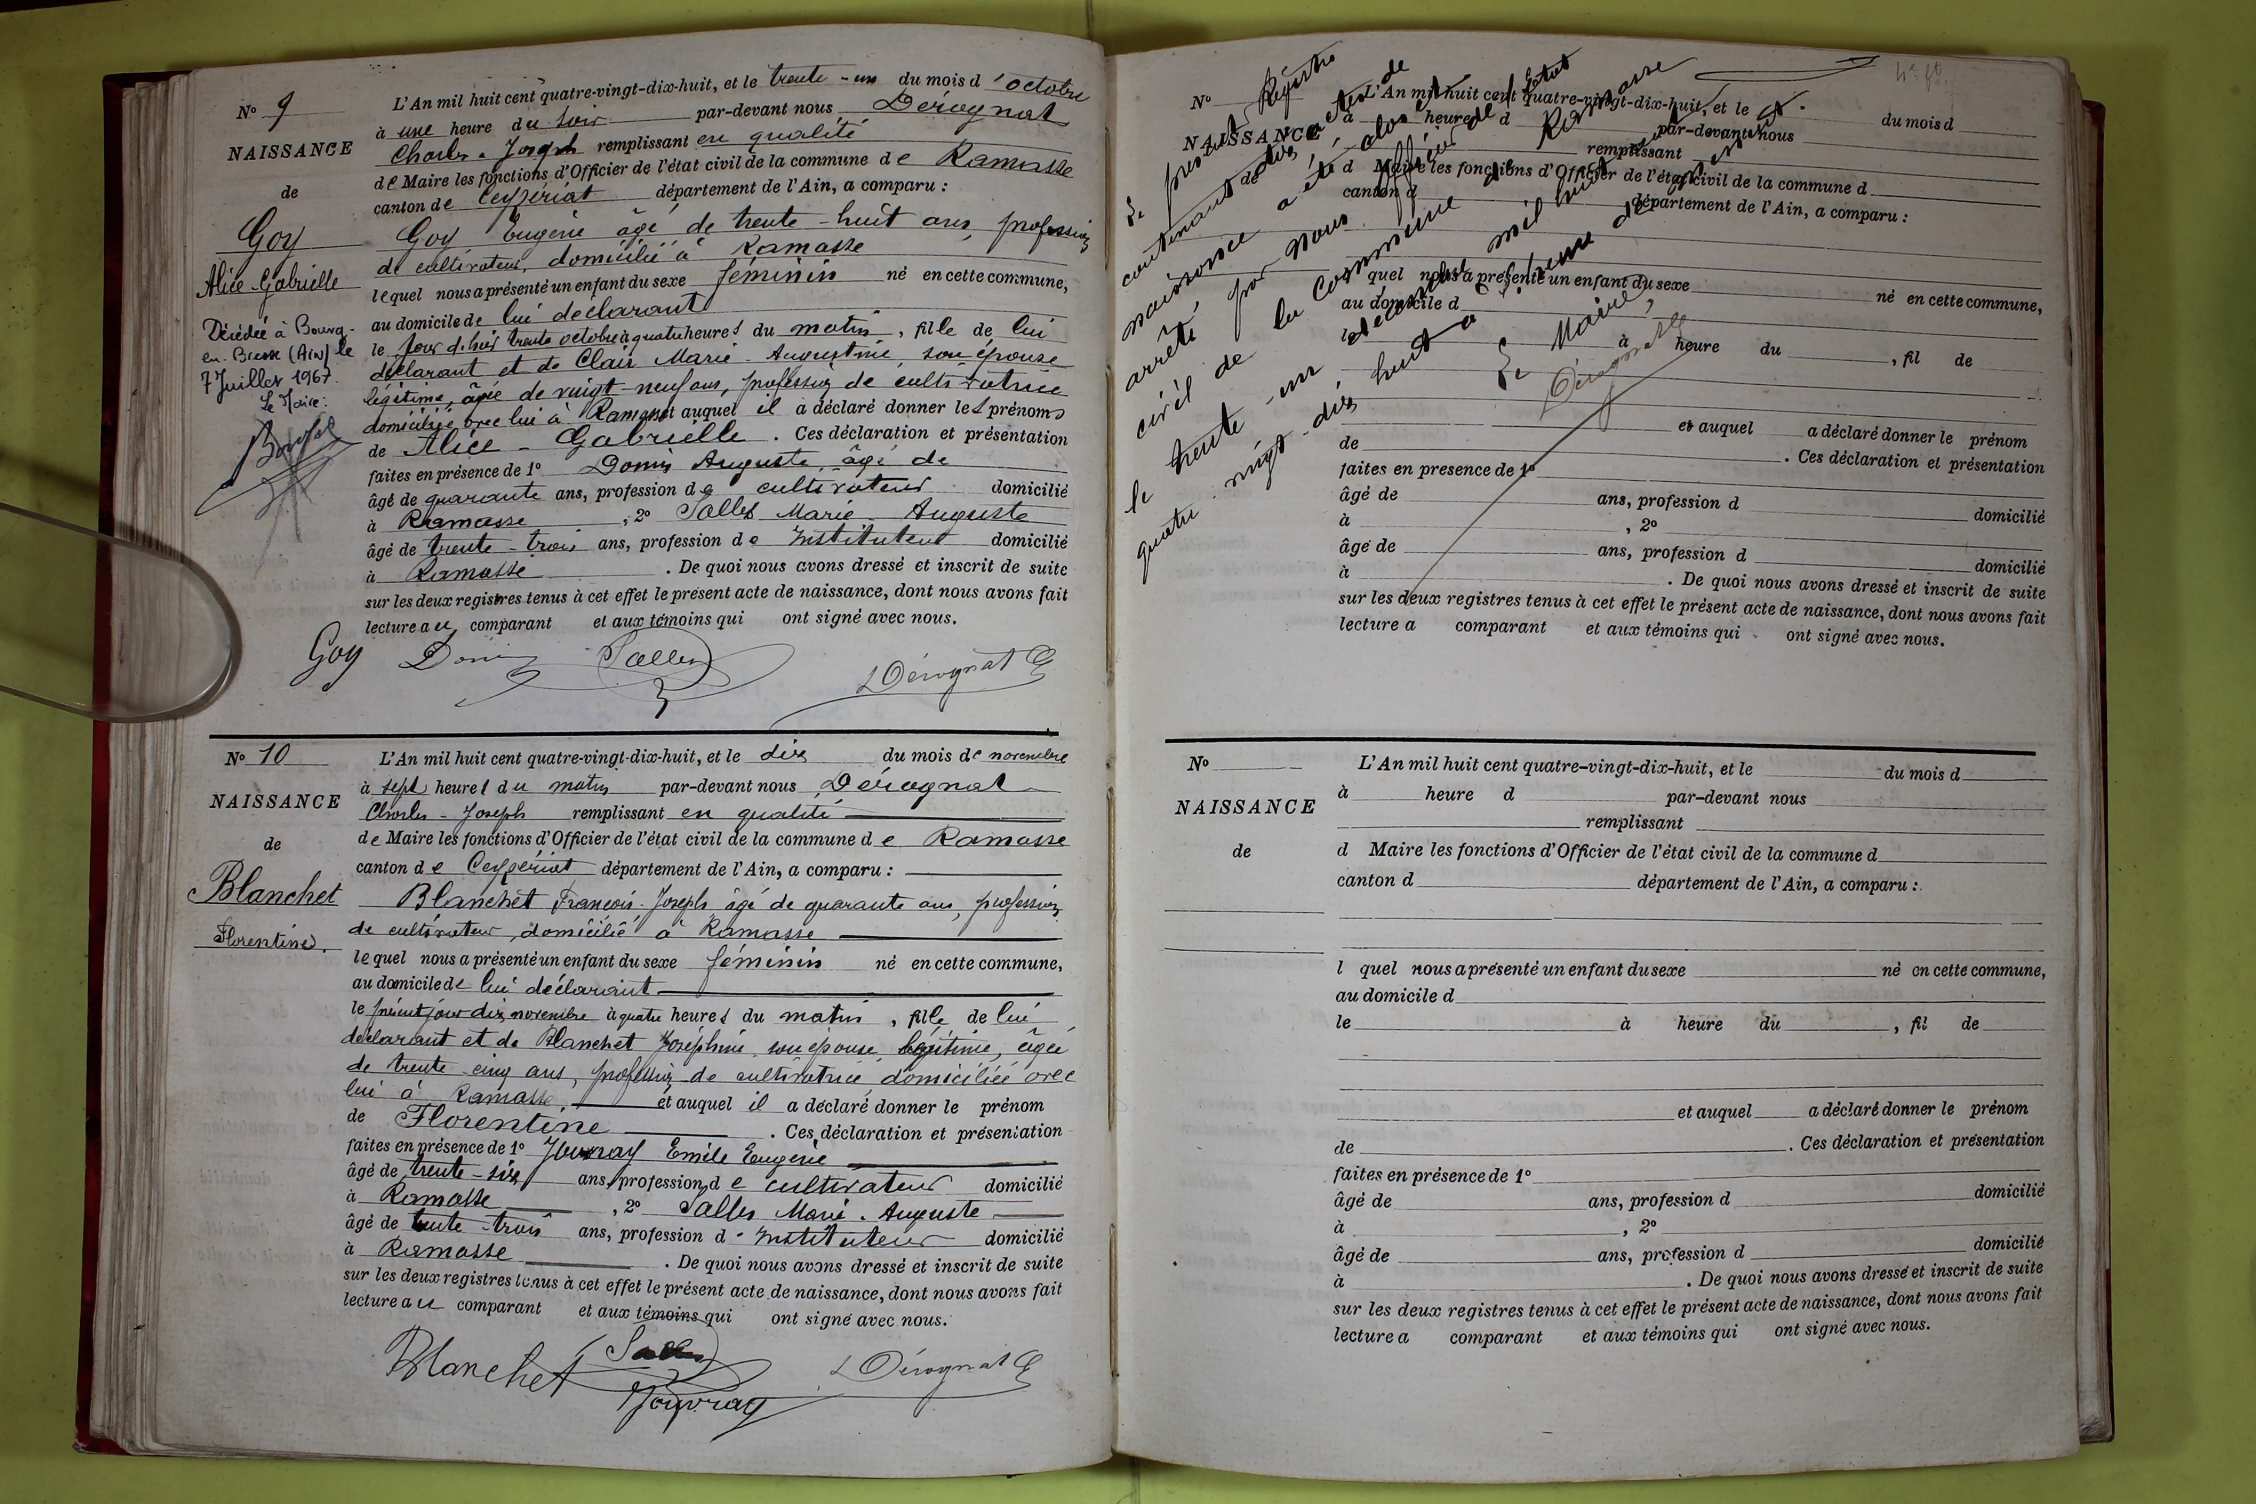 N° 9
NAISSANCE
de
Goy
Alice-Gabrielle
Décédée à Bourg-
en-Bresse (Ain) le
7 Juillet 1967.
Le Maire:
L'An mil huit cent quatre-vingt-dix-huit, et le trente-un du mois d'octobre
à une heure du soir par-devant nous Dérognat
Charles-Joseph remplissant en qualité
de Maire les fonctions d'Officier de l'état civil de la commune de Ramasse
canton de Ceyzériat département de l'Ain, a comparu :
Goy Eugène âgé de trente-huit ans, profession
de cultivateur, domicilié à Ramasse
lequel nous a présenté un enfant du sexe féminin né en cette commune,
au domicile de lui déclarant
le jour d'hier trente octobre à quatre heures du matin, fille de lui
déclarant et de Clair Marie-Augustine, son épouse
légitime, âgée de vingt-neuf ans, profession de cultivatrice
domiciliée avec lui à Ramasse et auquel il a déclaré donner les prénoms
de Alice-Gabrielle. Ces déclaration et présentation
faites en présence de 1° Domin Auguste, âgé de
âgé de quarante ans, profession de cultivateur domicilié
à Ramasse, 2° Sallet Marie-Auguste
âgé de trente-trois ans, profession de Instituteur domicilié
à Ramasse. De quoi nous avons dressé et inscrit de suite
sur les deux registres tenus à cet effet le présent acte de naissance, dont nous avons fait
lecture au comparant et aux témoins qui ont signé avec nous.
Goy Dérognat
N° 10
NAISSANCE
de
Blanchet
Florentine.
L'An mil huit cent quatre-vingt-dix-huit, et le dix du mois de novembre
à sept heures du matin par-devant nous Dérognat
Charles-Joseph remplissant en qualité
de Maire les fonctions d'Officier de l'état civil de la commune de Ramasse
canton de Ceyzériat département de l'Ain, a comparu :
Blanchet François-Joseph âgé de quarante ans, profession
de cultivateur, domicilié à Ramasse
lequel nous a présenté un enfant du sexe féminin né en cette commune,
au domicile de lui déclarant
le présent jour dix novembre à quatre heures du matin, fille de lui
déclarant et de Blanchet Joséphine son épouse légitime, âgée
de trente-cinq ans, profession de cultivatrice domiciliée avec
lui à Ramasse. et auquel il a déclaré donner le prénom
de Florentine. Ces déclaration et présentation
faites en présence de 1° Jouvray Emile Eugène
âgé de trente-six ans, profession de cultivateur domicilié
à Ramasse, 2° Sallet Marie-Auguste
âgé de trente-trois ans, profession d'Instituteur domicilié
à Ramasse. De quoi nous avons dressé et inscrit de suite
sur les deux registres tenus à cet effet le présent acte de naissance, dont nous avons fait
lecture au comparant et aux témoins qui ont signé avec nous.
Blanchet Jouvray Dérognat
Le présent Registre
contenant dix actes de
naissance a été clos et
arrêté par nous officier de l'état
civil de la Commune de Ramasse
le trente-un décembre mil huit cent
quatre-vingt-dix-huit
Le Maire,
Dérognat
N°
NAISSANCE
de
L'An mil huit cent quatre-vingt-dix-huit, et le du mois d
à heure d par-devant nous
remplissant
d Maire les fonctions d'Officier de l'état civil de la commune d
canton d département de l'Ain, a comparu :
l quel nous a présenté un enfant du sexe né en cette commune,
au domicile d
le à heure du , fil de
et auquel a déclaré donner le prénom
de . Ces déclaration et présentation
faites en présence de 1°
âgé de ans, profession d domicilié
à , 2°
âgé de ans, profession d domicilié
à . De quoi nous avons dressé et inscrit de suite
sur les deux registres tenus à cet effet le présent acte de naissance, dont nous avons fait
lecture a comparant et aux témoins qui ont signé avec nous.
N°
NAISSANCE
de
L'An mil huit cent quatre-vingt-dix-huit, et le du mois d
à heure d par-devant nous
remplissant
d Maire les fonctions d'Officier de l'état civil de la commune d
canton d département de l'Ain, a comparu :
l quel nous a présenté un enfant du sexe né en cette commune,
au domicile d
le à heure du , fil de
et auquel a déclaré donner le prénom
de . Ces déclaration et présentation
faites en présence de 1°
âgé de ans, profession d domicilié
à , 2°
âgé de ans, profession d domicilié
à . De quoi nous avons dressé et inscrit de suite
sur les deux registres tenus à cet effet le présent acte de naissance, dont nous avons fait
lecture a comparant et aux témoins qui ont signé avec nous.